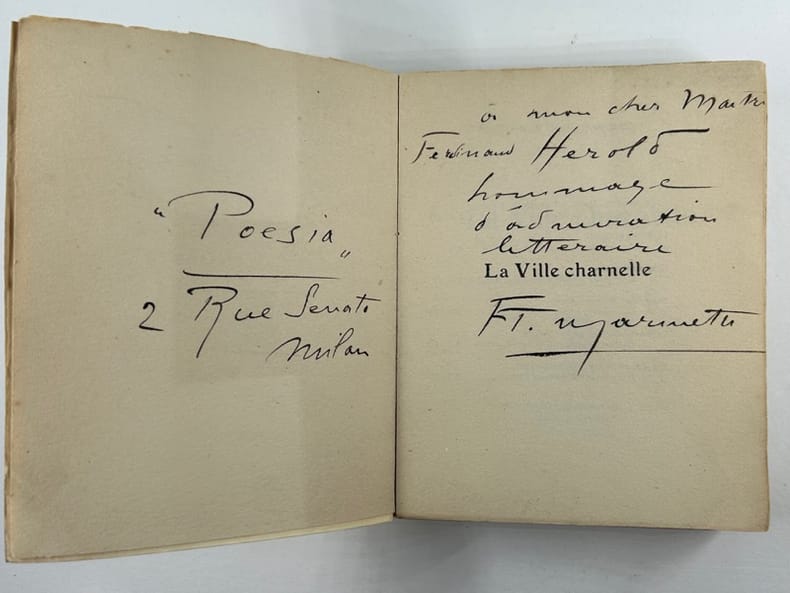 "Poesia"
2 Rue Senato
Milan
à mon cher Maitre
Ferdinand Herold
hommage
d'admiration
litteraire
La Ville charnelle
FT. Marinetti